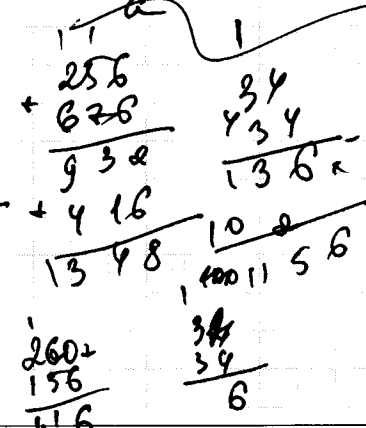 1 1
256
+ 676
932
+ 416
1348
1
34
34
136
102
1156
1
260+
156
416
1
34
34
6